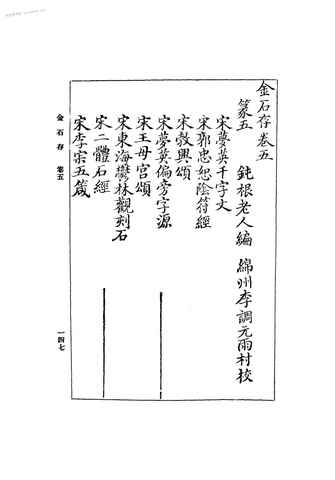 金石存卷五
篆五　鈍根老人編　綿州李調元雨村校
宋夢英千字文
宋郭忠恕陰符經
宋敦興頌
宋夢英偏旁字源
宋王母宮頌
宋東海鬱林觀刻石
宋二體石經
宋李宗五箴
金石存　卷五
一四七